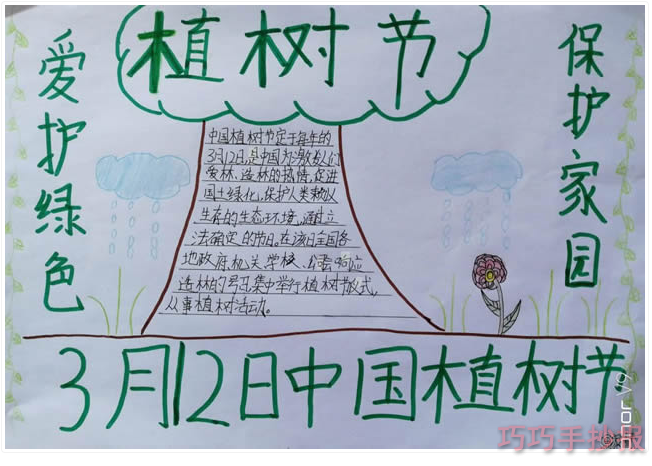 植树节
爱护绿色
保护家园
中国植树节定于每年的
3月12日，是中国为激发人们
爱林、造林的热情，促进
国土绿化，保护人类赖以
生存的生态环境，通过立
法确定的节日。在该日全国各
地政府、机关、学校、公
造林的号召集中举行植树仪式，
从事植树活动。
3月12日中国植树节
巧巧手抄报